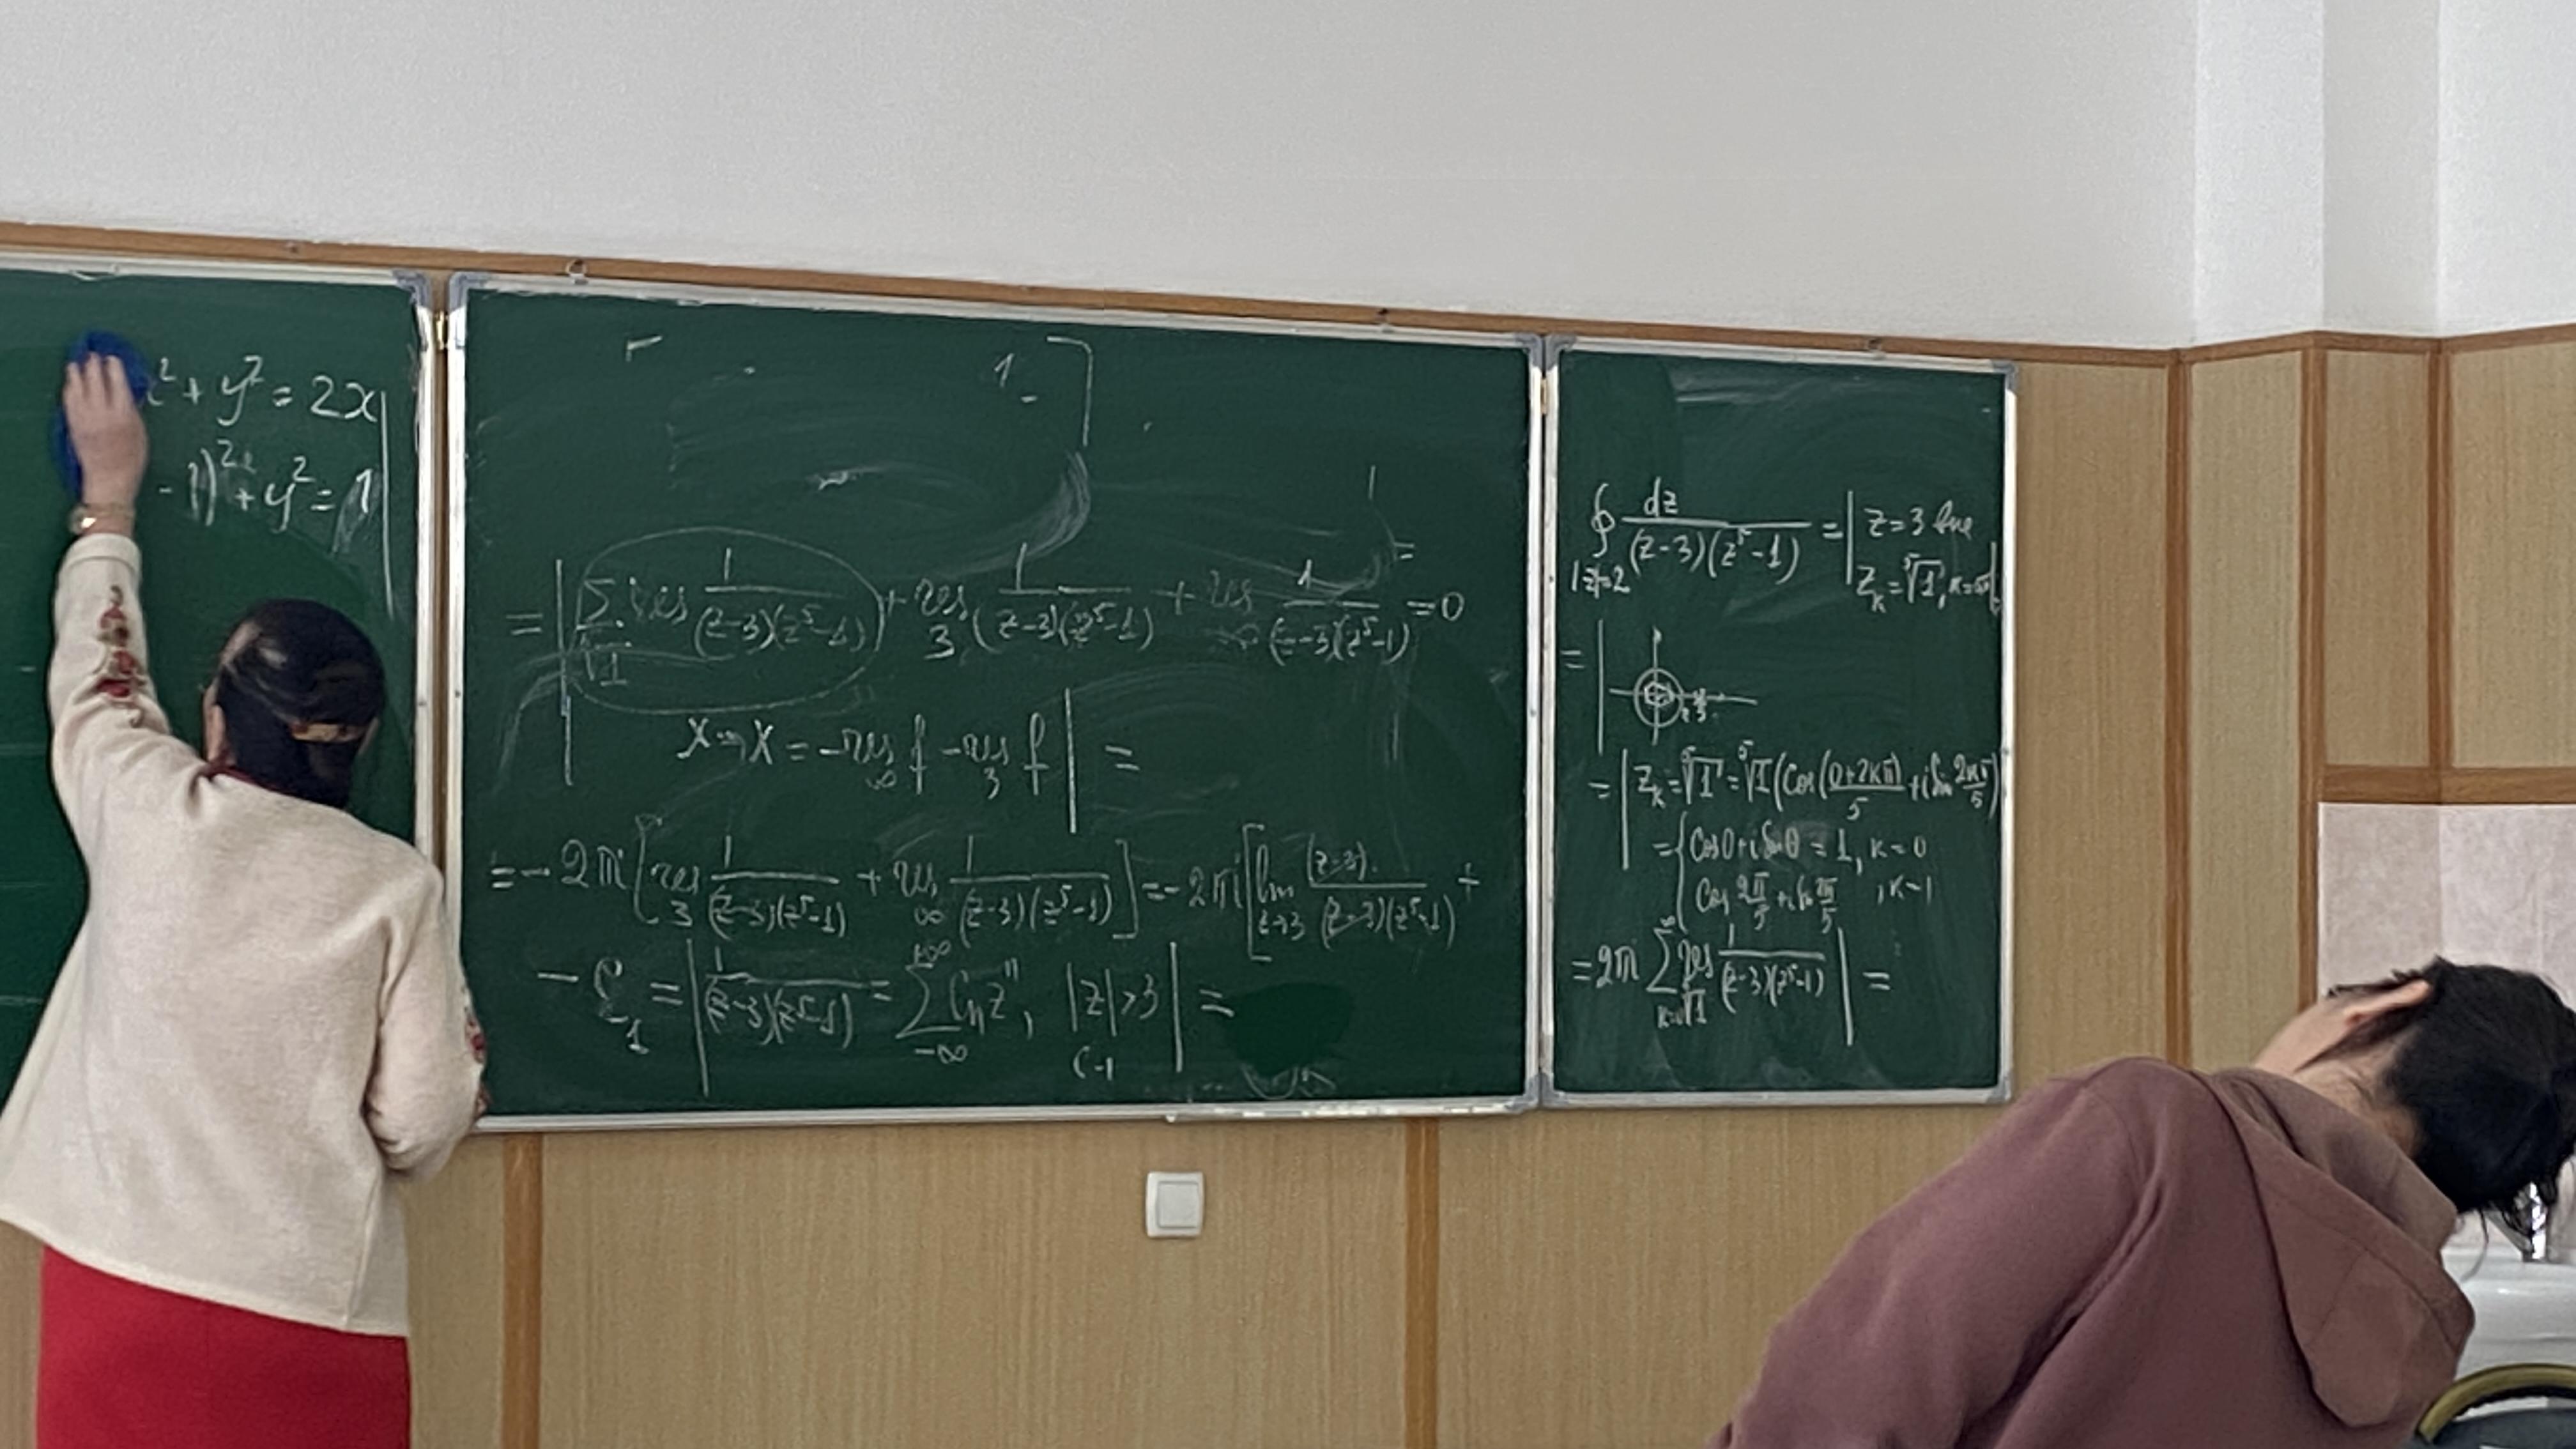 ² + y² = 2x
- 1)² + y² = 1
= | ∑ ⁵√1 res 1/((z-3)(z⁵-1)) + res 3 1/((z-3)(z⁵-1)) + res ∞ 1/((z-3)(z⁵-1)) = 0
X → X = -res ∞ f - res 3 f | =
= - 2πi [ res 3 1/((z-3)(z⁵-1)) + res ∞ 1/((z-3)(z⁵-1)) ] = - 2πi [ lim z→3 (z-3)·/((z-3)(z⁵-1)) +
- C₋₁ = | 1/((z-3)(z⁵-1)) = ∑ -∞ +∞ Cₙzⁿ, |z|>3 | =
C-1
∮ |z|=2 dz/((z-3)(z⁵-1)) = | z=3 вне
zₖ = ⁵√1,
= |
= | zₖ = ⁵√1 = ⁵√1 (Cos (0+2kπ)/5 + i Sin 2kπ/5)
= { Cos0 + i Sin0 = 1, k=0
Cos 2π/5 + i Sin 2π/5, k=1
= 2πi ∑ res ⁵√1 1/((z-3)(z⁵-1)) | =